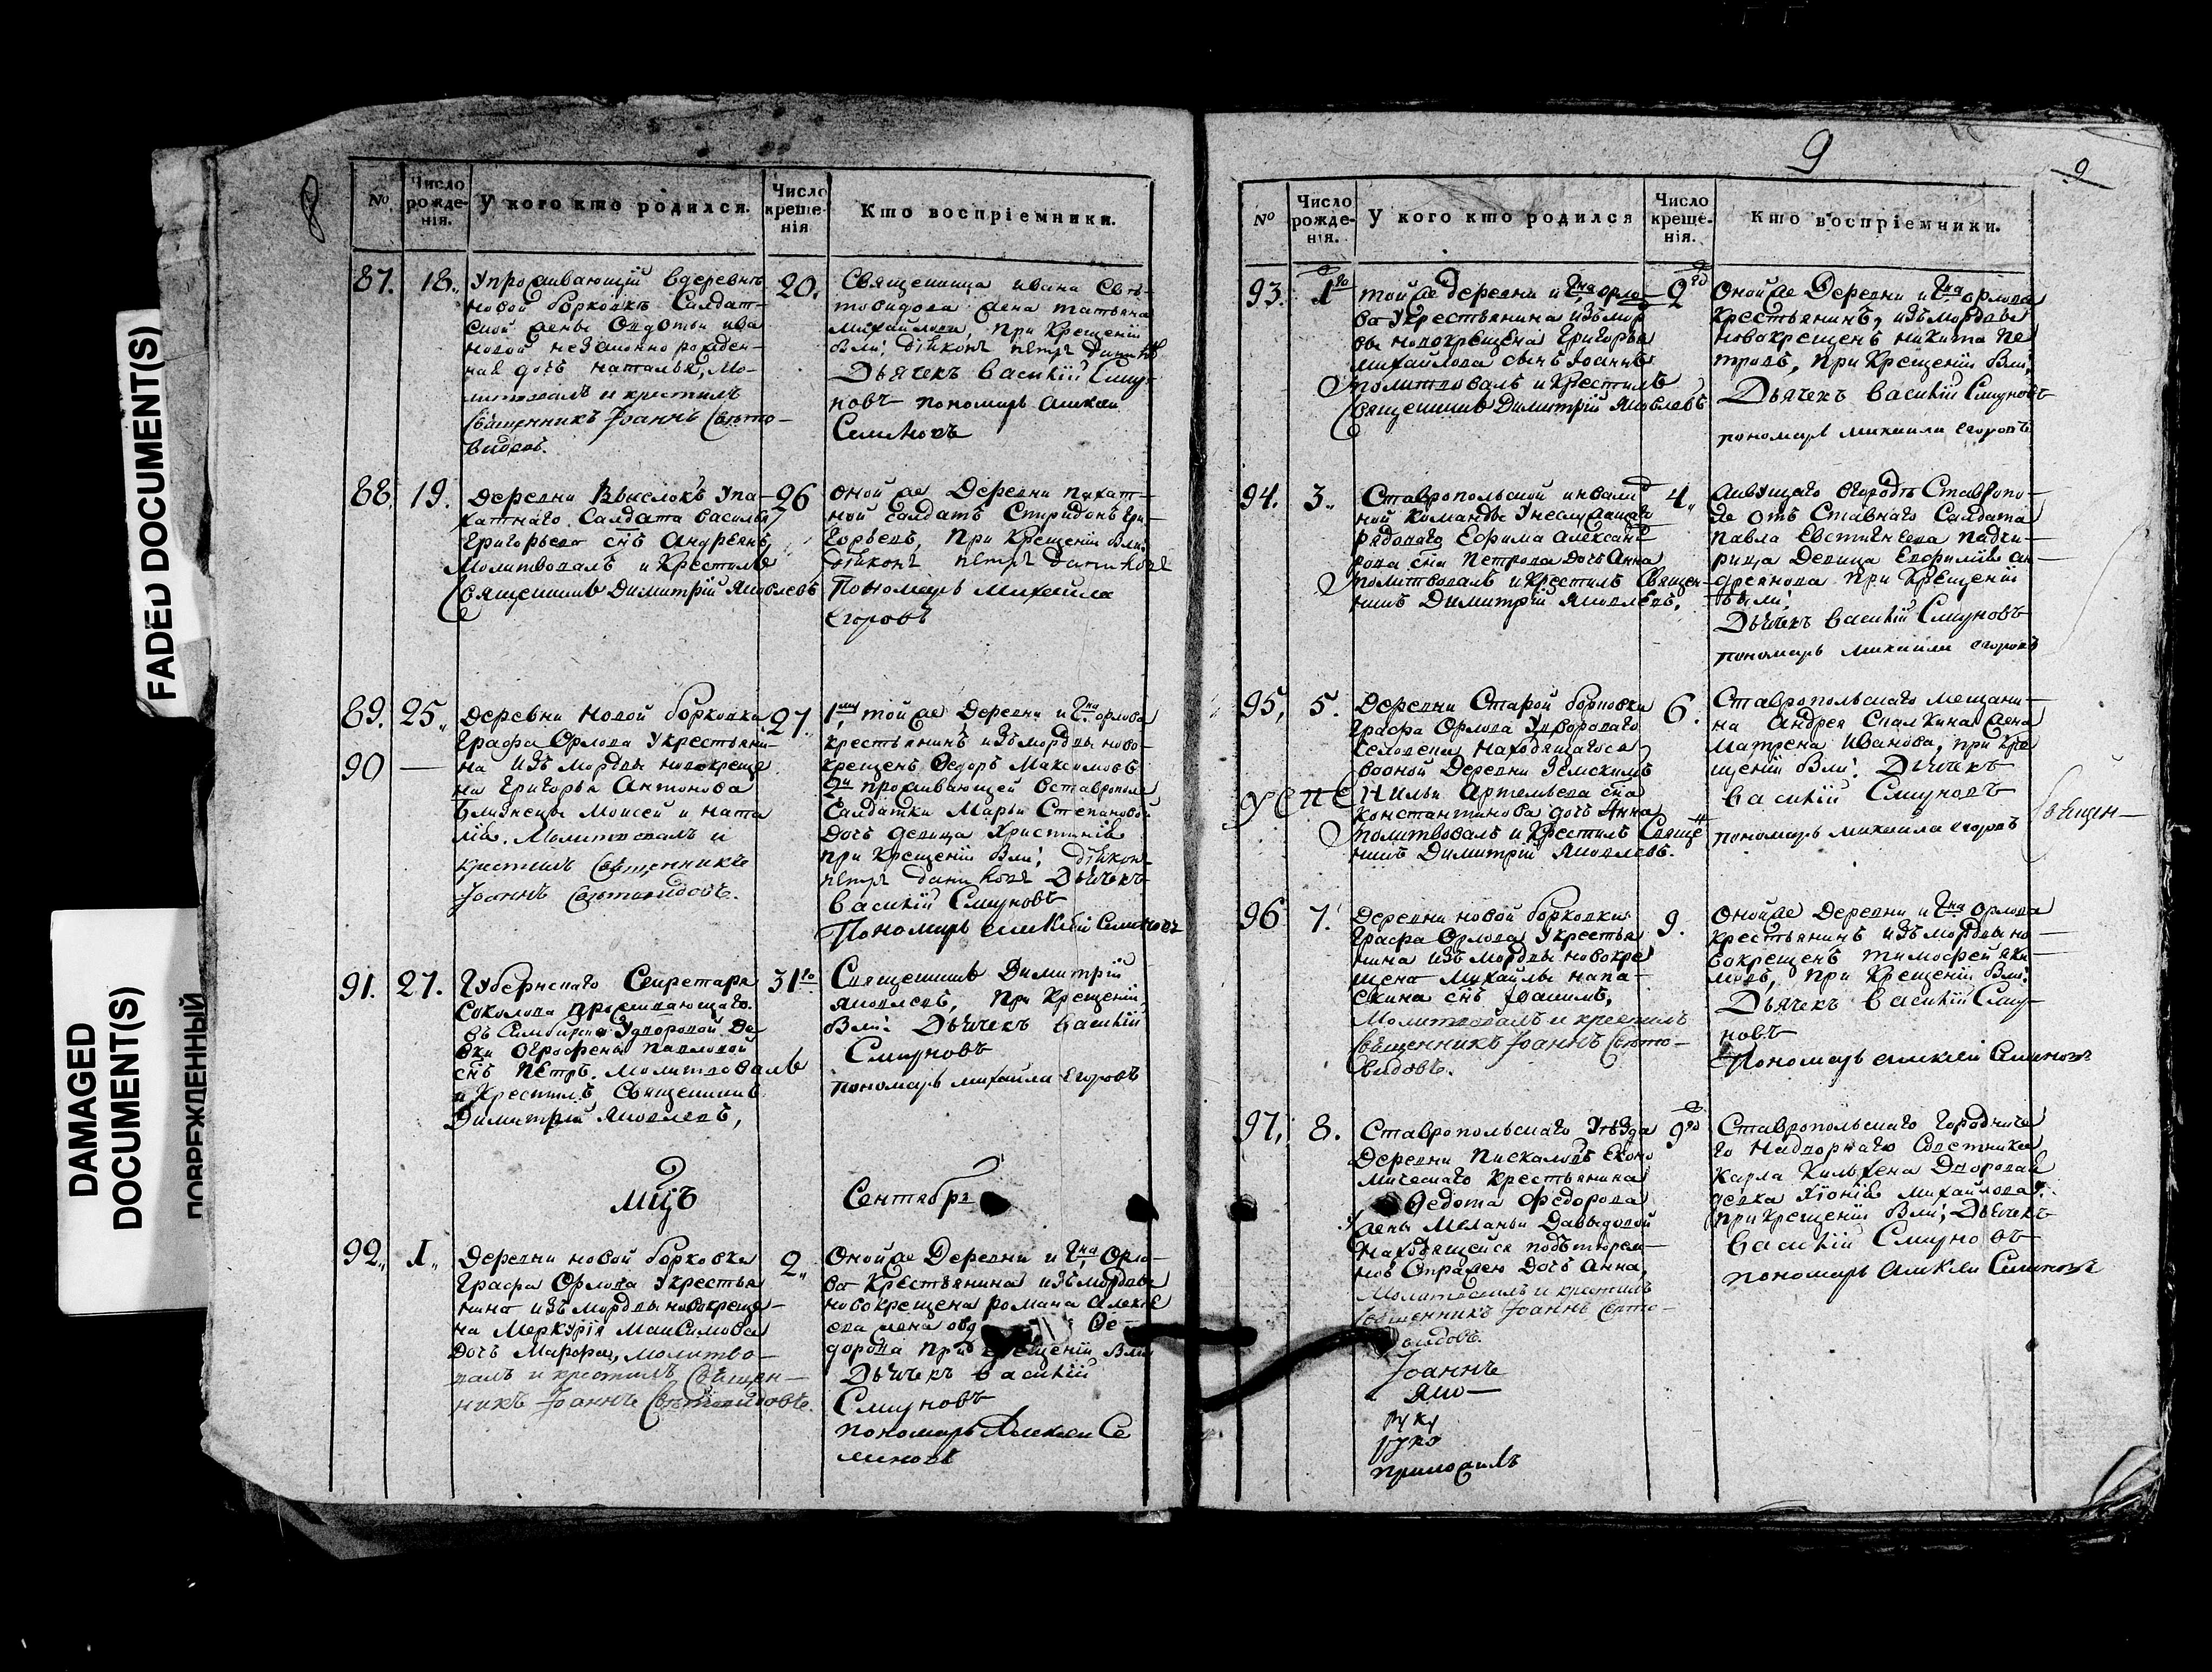 FADED DOCUMENT(S)
DAMAGED
DOCUMENT(S)
ПОВРЕЖДЕННЫЙ
8
№
Число
рожде-
нія.
У кого кто родился.
Число
креще-
нія
Кто воспріемники.
87. 18.
Упроживающій вдеревнѣ
новой борковкѣ Салдат-
ской жены Овдотьи ива
новой незаконно рожден-
ная дочь наталья, Мо-
литвовалъ и крестилъ
Священникъ Іоаннъ Свѣто-
видовъ.
20.
Священника ивана Свѣ-
товидова жена татьяна
михайлова, при крещеніи
были: діяконъ петръ
Дьячекъ василій Смир-
новъ пономарь алексѣй
Семеновъ
88. 19.
Деревни Выселокъ Упа-
хатнаго Салдата василья
Григорьева снъ Андреянъ,
Молитвовалъ и Крестилъ
Священникъ Димитрій Яковлевъ
26
оной же Деревни пахат-
ной салдатъ Спиридонъ Гри-
горьевъ, При Крещеніи были:
діяконъ петръ
Пономарь Михаила
Егоровъ
89. 25.
90 —
Деревни Новой борковки
Графа Орлова Укрестьяни-
на изъ мордвы новокреще
на Григорья Антонова
Близнецы Моисей и ната
лія. Молитвовалъ и
крестилъ Священникъ
Іоаннъ Свѣтовидовъ.
27.
1й той же Деревни и Гна орлова
крестьянинъ изъ мордвы ново-
крещенъ Ѳедоръ Максимовъ
2й проживающей Вставрополе
Салдатки Марьи Степановой
дочь девица Христинія
при крещеніи были: діякон
петръ Дьячекъ
василій Смирновъ
Пономарь алексѣй Семеновъ
91. 27.
Губернскаго Секретаря
Соколова проживающаго
въ Симбирске Удворовой де
вки Огрофены павловой
снъ Петръ. Молитвовалъ
и Крестилъ Священникъ
Димитрій Яковлевъ,
31го
Священникъ Димитрій
Яковлевъ, при Крещеніи
были: Дьячекъ василій
Смирновъ
пономарь михайли Егоровъ
Мцъ Сентябрь
92. 1.
Деревни новой борковки
Графа Орлова Укрестья
нина изъ мордвы новокреще-
на Меркурія Максимова
дочь Марфа, молитво-
валъ и крестилъ Священ-
никъ Іоаннъ Свѣтовидовъ.
2.
Оной же Деревни и Гна Орло-
ва Крестьянина изъ мордвы
новокрещена романа алексе
ева жена Ѳе-
дорова При крещеніи были
Дьячекъ василій
Смирновъ
пономарь Алексѣй Се
меновъ
9
9
№
Число
рожде-
нія.
У кого кто родился
Число
креще-
нія.
Кто воспріемники.
93. 1го
той же деревни и Гна орло-
ва Укрестьянина изъ мор
вы новокрещена Григорья
михайлова сынъ Іоаннъ
молитвовалъ и Крестилъ
Священникъ Димитрій Яковлевъ
2го
Оной же Деревни и Гна орлова
Крестьянинъ, изъ мордвы
новокрещенъ никита пе
тровъ, при Крещеніи были,
Дьячекъ василій Смирновъ
пономарь михаила егоровъ
94. 3.
Ставропольской инвалид
ной команды Унеслужащаго
рядоваго Ефима Алексан
рова сна Петрова дочь Анна
молитвовалъ и Крестилъ Священ-
никъ Димитрій Яковлевъ,
4.
живущаго Вгородѣ Ставропо-
ле отъ Ставнаго Салдата
Павла Евстигнеева падче-
рица Девица Евфимія ан-
дреянова при Крещеніи
были:
Дьячекъ василій Смирновъ
пономарь михаила егоровъ
95, 5.
Деревни Старой борковки
Графа Орлова Удвороваго
человека находящагося
вооной Деревни Земскимъ
Ильи Артемьева сна
константинова дочь Анна
молитвовалъ и Крестилъ Священ
никъ Димитрій Яковлевъ.
6.
Ставропольскаго мещани-
на Андрея Спалкина жена
Матрена Иванова, при кре
щеніи были: Дьячекъ
василій Смирновъ
пономарь михаила егоровъ
Священ-
96 7.
Деревни новой борковки
Графа Орлова Укрестья
нина изъ мордвы новокре
щена михайлы напа-
скина снъ Іоакимъ,
Молитвовалъ и крестилъ
Священникъ Іоаннъ Свѣто-
видовъ.
9.
Оной же Деревни и Гна орлова
крестьянинъ изъ мордвы но-
вокрещенъ тимофей яки
мовъ, при Крещеніи были:
Дьячекъ василій Смир-
новъ
Пономарь алексѣй Семеновъ
97, 8.
Ставропольскаго Уѣзда
Деревни Пискаловъ Еконо
мическаго крестьянина
Федота Федорова
жены Меланьи Давыдовой
находящейся подътюрем-
ною Стражею дочь Анна,
Молитвовалъ и крестилъ
Священникъ Іоаннъ Свѣто-
видовъ.
Іоаннъ
яко-
руку
руко
приложилъ
9го
Ставропольскаго Городниче
го Надворнаго Советника
Карла Дворовая
девка Хіонія михайлова,
при крещеніи были; Дьячекъ
василій Смирновъ
пономарь алексѣй Семеновъ